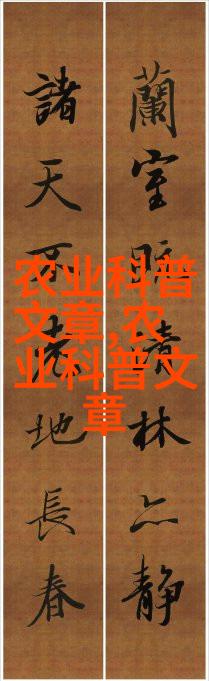 蘭室林静
諸天地長春
农业科普
文章,农
业科普文
章